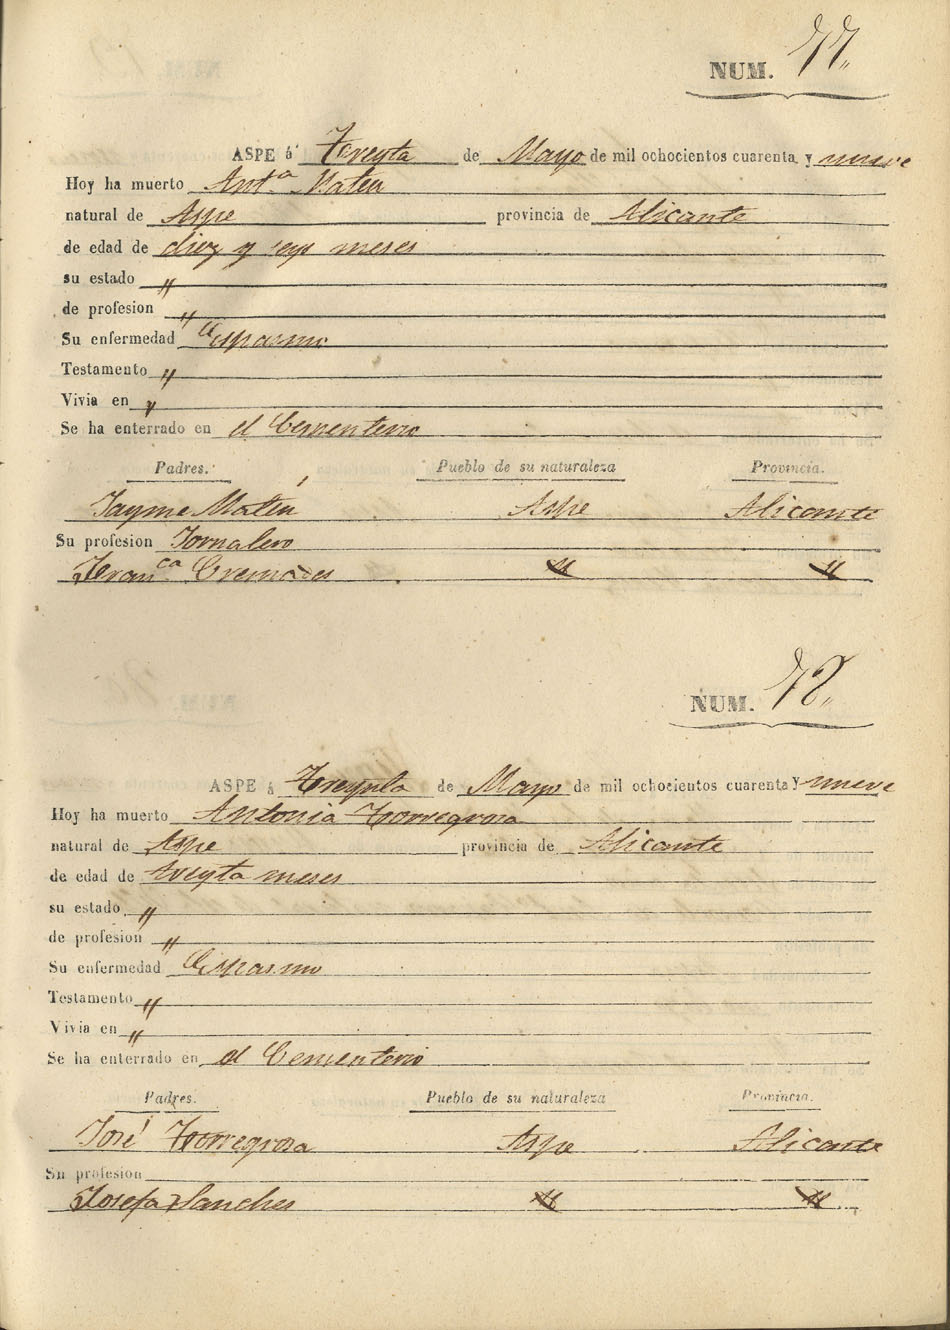 NUM. 77.
ASPE á Treyta de Mayo de mil ochocientos cuarenta y nueve
Hoy ha muerto Ant.ª Mateu
natural de Aspe provincia de Alicante
de edad de diez y seys meses
su estado "
de profesion "
Su enfermedad Espasmo
Testamento "
Vivia en "
Se ha enterrado en el Cementerio
Padres. Pueblo de su naturaleza Provincia.
Jayme Mateu Aspe Alicante
Su profesion Jornalero
Fran.ca Cremades " "
NUM. 78.
ASPE á Treynta de Mayo de mil ochocientos cuarenta y nueve
Hoy ha muerto Antonia Torregrosa
natural de Aspe provincia de Alicante
de edad de treyta meses
su estado "
de profesion "
Su enfermedad Espasmo
Testamento "
Vivia en "
Se ha enterrado en el Cementerio
Padres. Pueblo de su naturaleza Provincia.
José Torregrosa Aspe Alicante
Su profesion
Josefa Sanches " "